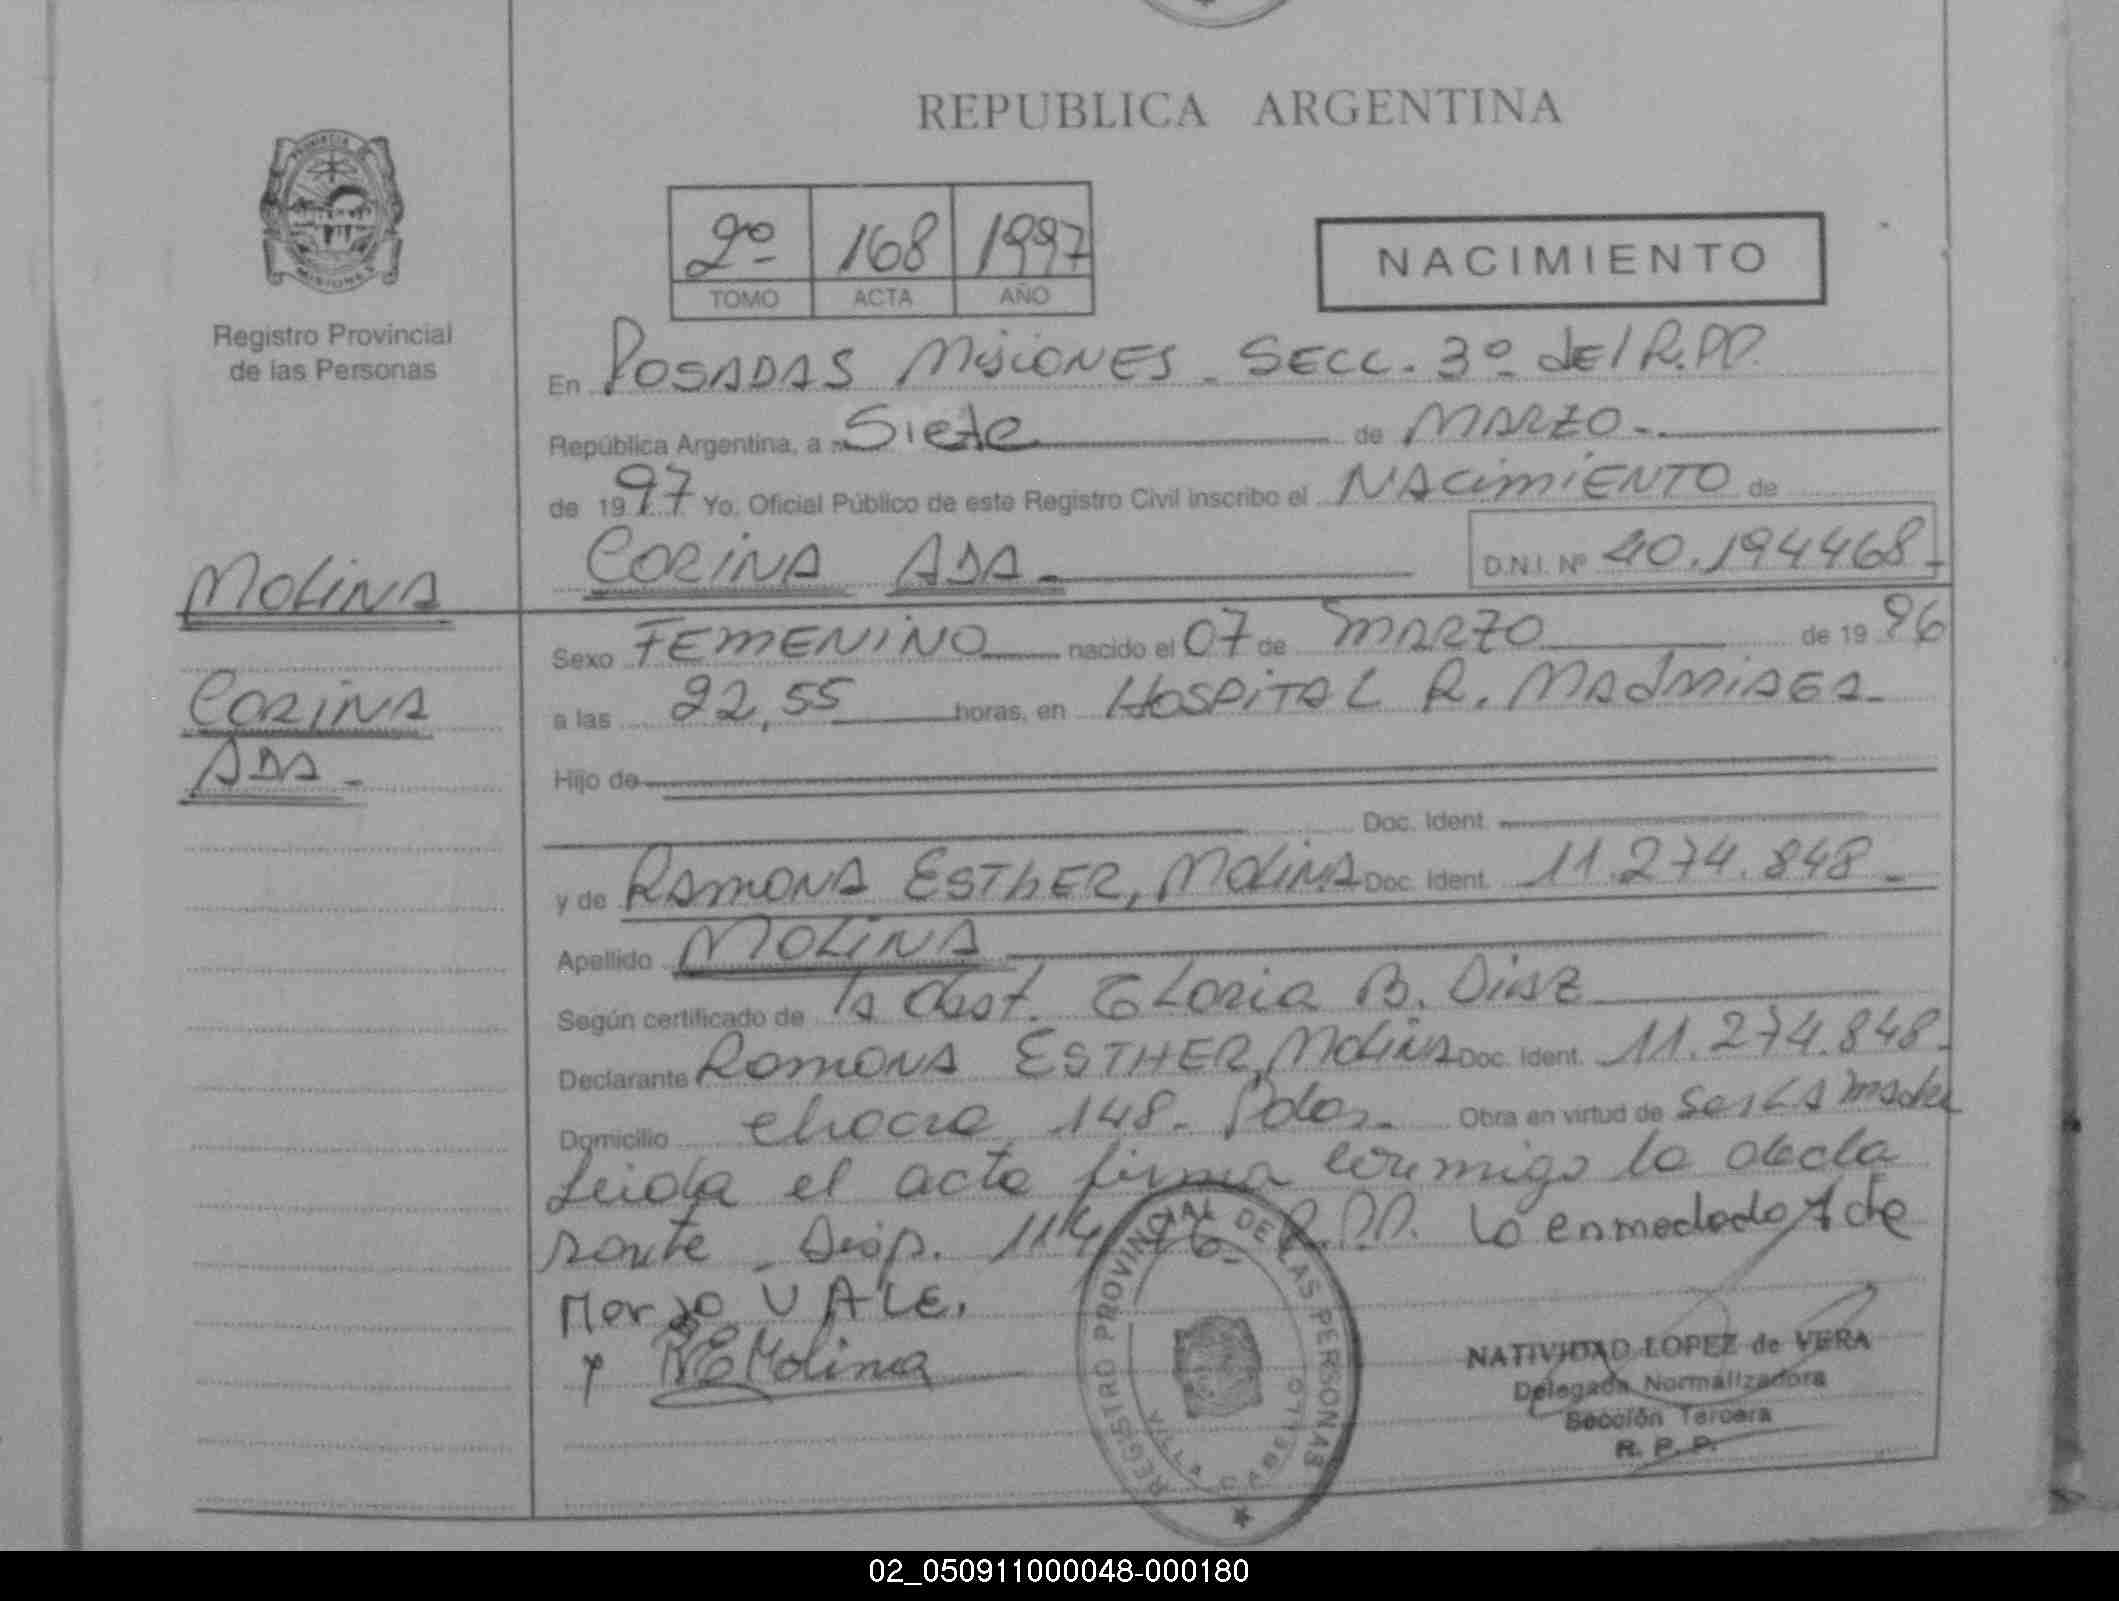 REPUBLICA ARGENTINA
PROVINCIA DE MISIONES
Registro Provincial
de las Personas
2º 168 1997
TOMO ACTA AÑO
NACIMIENTO
En POSADAS MISIONES - SECC. 3º dEl R.PP.
República Argentina, a Siete de MARZO -
de 1997 Yo. Oficial Público de este Registro Civil inscribo el NACIMIENTO de
CORINA ADA - D.N.I. Nº 40.194468-
MOLINA
CORINA
ADA -
Sexo FEMENINO nacido el 07 de MARZO de 1996
a las 22,55 horas, en HOSPITAL R. MADARIAGA -
Hijo de
Doc. Ident.
y de RAMONA ESTHER, MOLINA Doc. Ident. 11.274.848 -
Apellido MOLINA
Según certificado de la Obst. GLoria B. Diaz
Declarante RAMONA ESTHER, MOLINA Doc. Ident. 11.274.848 -
Domicilio chacra 148 - Pdas - Obra en virtud de Ser LA madre
Leida el acta firma conmigo la decla
rante - Disp. 114/96 - R.P.P. lo enmedado 7 de
Marzo VALE.
REMolina
REGISTRO PROVINCIAL DE LAS PERSONAS
VILLA CABELLO
NATIVIDAD LOPEZ de VERA
Delegada Normalizadora
Sección Tercera
R. P. P.
02_050911000048-000180